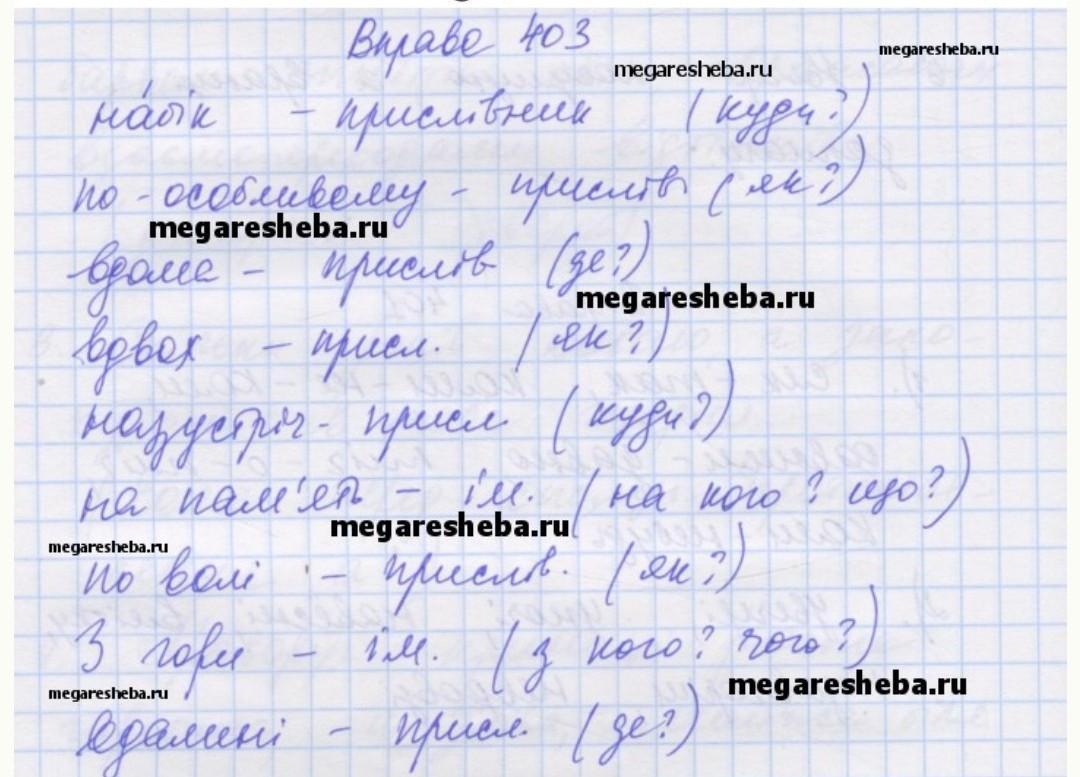 Вправа 403
megaresheba.ru
megaresheba.ru
набік – прислівник (куди?)
по-особливому – прислів (як?)
megaresheba.ru
вдома – прислів (де?)
megaresheba.ru
вдвох – присл. (як?)
назустріч – присл (куди?)
на пам'ять – ім. (на кого? що?)
megaresheba.ru
megaresheba.ru
по волі – прислів. (як?)
З гори – ім. (з кого? чого?)
megaresheba.ru
megaresheba.ru
вдалині – присл. (де?)